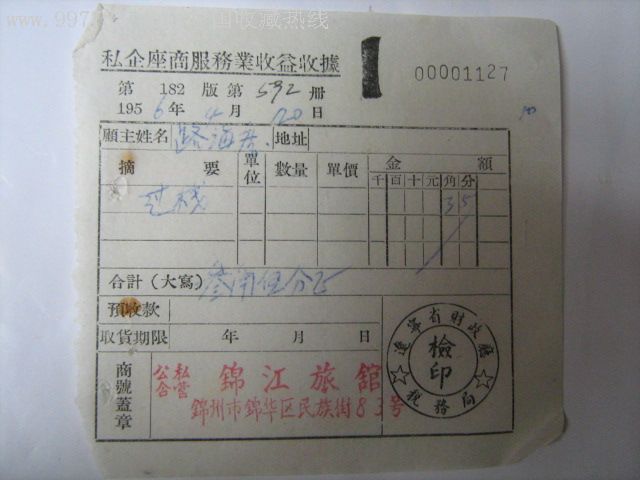 www.997
中国收藏热线
私企座商服務業收益收據
00001127
第 182 版 第 592 册
1956年 4月 20日
顧主姓名 路海 地址
摘要 單位 數量 單價 金額
千 百 十 元 角 分
3 5
合計(大寫) 叁角伍分正
預收款
取貨期限 年 月 日
商號蓋章
公私合营 錦江旅舘
錦州市錦华区民族街83号
遼寧省財政廳
檢印
稅務局